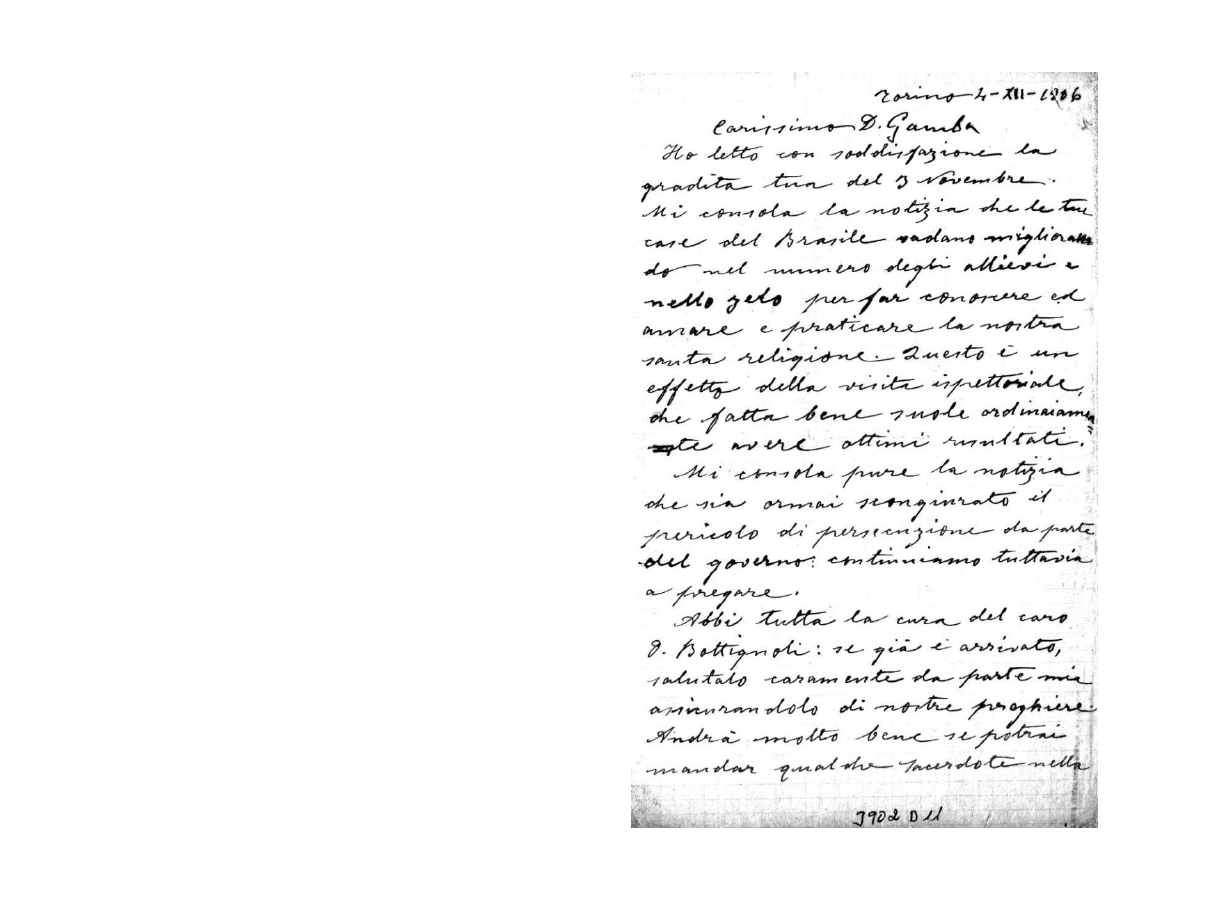 Torino 4-XII-1906
Carissimo D. Gamba
Ho letto con soddisfazione la
gradita tua del 3 Novembre.
Mi consola la notizia che le tue
case del Brasile vadano miglioran
do nel numero degli allievi e
nello zelo per far conoscere ed
amare e praticare la nostra
santa religione. Questo è un
effetto della visita ispettoriale,
che fatta bene suole ordinaiamen=
te avere ottimi risultati.
Mi consola pure la notizia
che sia ormai scongiurato il
pericolo di persecuzione da parte
del governo: continuiamo tuttavia
a pregare.
Abbi tutta la cura del caro
D. Bottignoli: se già è arrivato,
salutalo caramente da parte mia
assicurandolo di nostre preghiere.
Andrà molto bene se potrai
mandar qualche sacerdote nella
3902 D 11